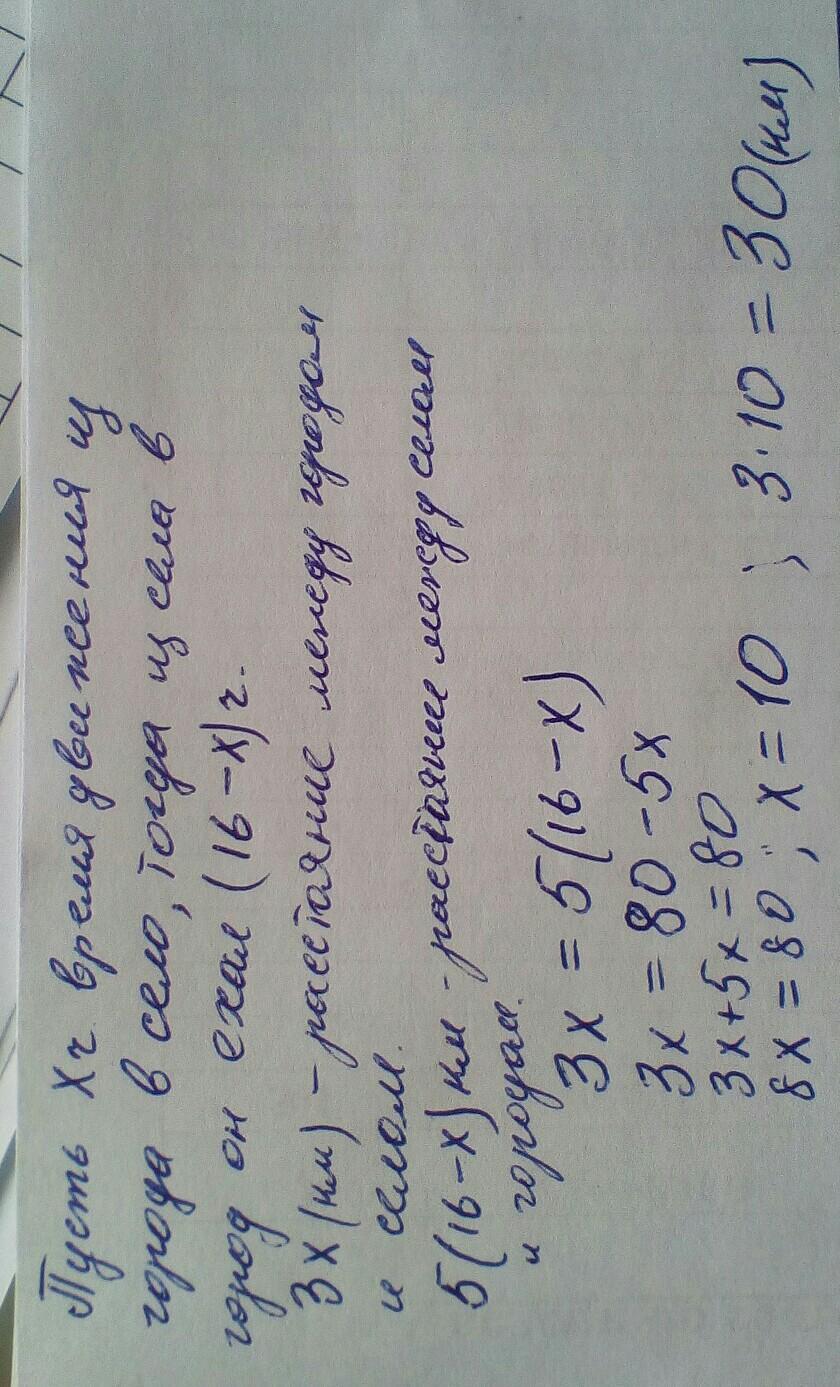 Пусть х ч. время движения из
города в село, тогда из села в
город он ехал (16-х) ч.
3х (км) - расстояние между городом
и селом.
5(16-х) км - расстояние между селом
и городом.
3х = 5(16-х)
3х = 80-5х
3х+5х=80
8х=80; х=10; 3·10=30(км)